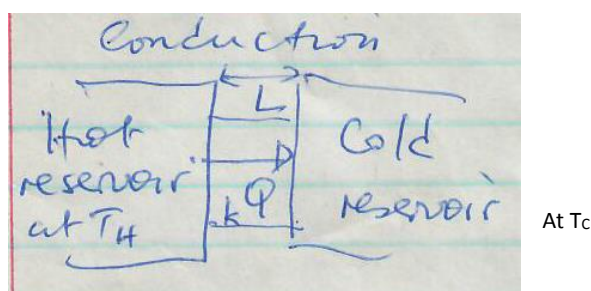 Conduction
L
Hot
reservoir
at TH
Q
k
Cold
reservoir
At Tc